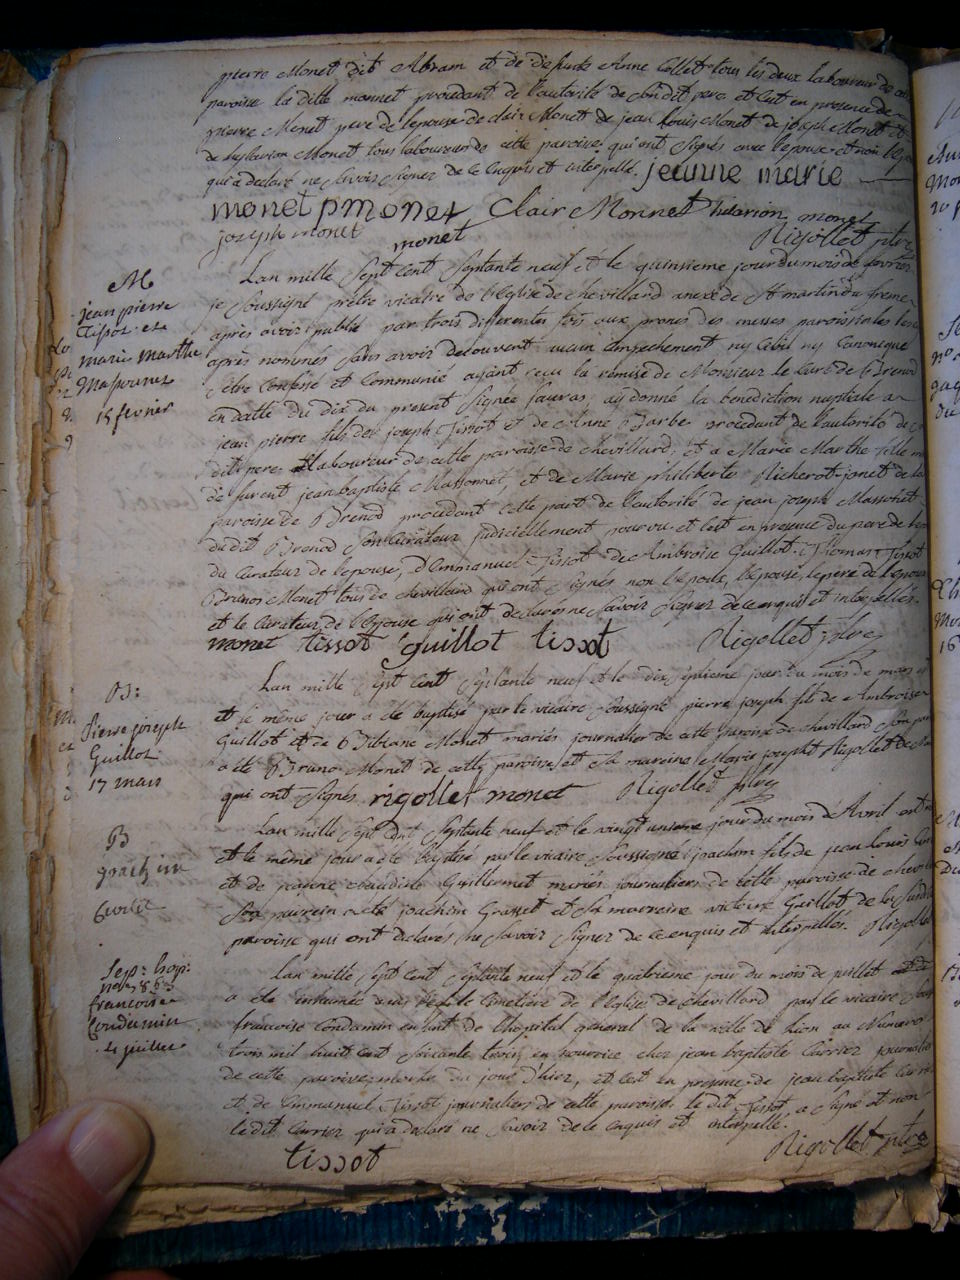 pierre Monet dit Abram et de defunte Anne Collet tous les deux laboureur de
paroisse la ditte monnet procedant de l'autorité de son dit pere et c'est en presence de
pierre Monet pere de lepouse de clair Monet de jean louis Monet de joseph Monet et
de hylarion Monet tous laboureurs de cette paroisse qui ont signés avec lepouse et non
qui a declaré ne savoir signer de ce enquis et interpellé. jeanne marie
monet pmonet Clair Monnet hilarion monet
joseph monet monet Rigollet ptre
M
jean pierre
Tissot et
marie marthe
Massonnet
15 fevrier
Lan mille sept cent septante neuf et le quinsieme jour du mois de fevrier
je soussigné prêtre vicaire de l'eglise de chevillard anexe de St martin du freme
après avoir publié par trois differentes fois aux prones des messes paroissiales les
après nommés sans avoir decouvert aucun empechement ny civil ny canonique
confessé et communié ayant reçu la remise de Monsieur le curé de Brenod
en datte du dix du present signée fauras ay donné la benediction nuptiale a
jean pierre fils de joseph Tissot et de Anne Barbe procedant de l'autorité de
dit pere laboureur de cette paroisse de chevillard, et a Marie Marthe fille
de furent jean baptiste Massonnet, et de Marie philiberte Richerot-jonet de la
paroisse de Brenod procedant cette part de l'autorité de jean joseph Massonnet
du dit Brenod son curateur judiciellement pourvu et c'est en presence du pere de
du curateur de lepouse, d'Emmanuel Tissot de Ambroise Guillot Thomas Tissot
Bruno Monet tous de chevillard qui ont signés non l'epoux, lepouse, le pere de l'epoux
et le curateur de l'Epouse qui ont declarés ne savoir signer de ce enquis et interpellés.
monet tissot guillot tissot Rigollet ptre
B:
Pierre joseph
Guillot
17 mars
Lan mille sept cent septante neuf et le dix septieme jour du mois de mars
et le même jour a été baptisé par le vicaire soussigné pierre joseph fils de Ambroise
Guillot et de Bibiane Monet mariés journalier de cette paroisse de chevillard son
a été Bruno Monet de cette paroisse et sa mareine Marie josepht Rigollet de
qui ont signés rigollet monet Rigollet ptre
B
joachim
Lan mille sept cent septante neuf et le vingt unieme jour du mois d'Avril
et le même jour a été baptisé par le vicaire soussigné joachim fils de jean louis
et de jeanne claudine Guillermet mariés journaliers de cette paroisse de
son parrein a été joachim Grasset et sa marreine victoire Guillot de
paroisse qui ont declarés ne savoir signer de ce enquis et interpellés. Rigollet
Sep: hop:
francoise
Condamin
4 juillet
Lan mille sept cent septante neuf et le quatrieme jour du mois de juillet
a été inhumée dans le cimetiere de l'eglise de chevillard par le vicaire
francoise Condamin enfant de l'hopital general de la ville de lion au Numero
trois mil huit cent soixante trois, en nourrice chez jean baptiste Carrier
de cette paroisse morte du jour d'hier, et c'est en presence de jean baptiste
et de Emmanuel Tissot journaliers de cette paroisse. le dit Tissot a signé et non
le dit Carrier qui a declaré ne savoir de ce enquis et interpellé.
tissot Rigollet ptre